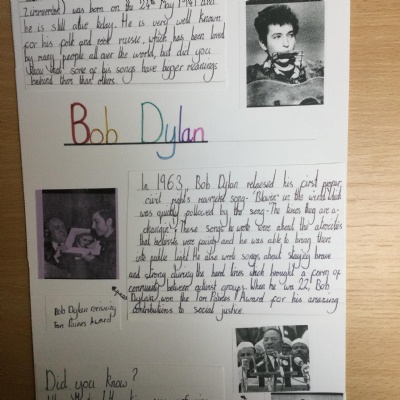 Zimmerman) was born on the 24th May 1941 and
he is still alive today. He is very well known
for his folk and rock music, which has been loved
by many people all over the world, but did you
know that some of his songs have bigger meanings
behind them than others.
Bob Dylan
In 1963, Bob Dylan released his first proper
civil rights movement song- 'Blowin' in the wind' which
was quickly followed by the song- 'The times they are a-
changin'. These songs he wrote were about the atrocities
that activists were facing and he was able to bring them
into public light. He also wrote songs about staying brave
and strong during the hard times which brought a form of
community between activist groups. When he was 22, Bob
Dylan won the Tom Paines Award for his amazing
contributions to social justice.
Bob Dylan receiving
Tom Paines Award
Did you know?